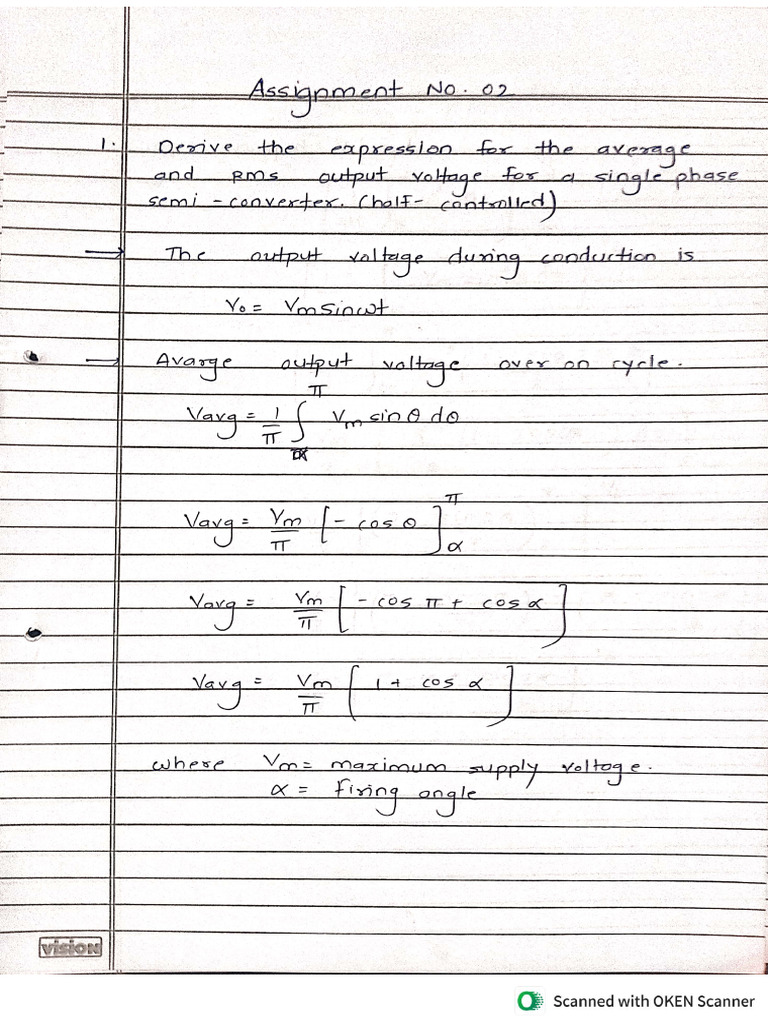 Assignment No. 02
1. Derive the expression for the average
and RMS output voltage for a single phase
semi-converter. (half-controlled)
→ The output voltage during conduction is
Vo = Vm sinωt
→ Avarge output voltage over on cycle.
Vavg = 1/π ∫_α^π Vm sin θ dθ
Vavg = Vm/π [- cos θ]_α^π
Vavg = Vm/π [- cos π + cos α]
Vavg = Vm/π [1 + cos α]
where Vm = maximum supply voltage.
α = firing angle
vision
Scanned with OKEN Scanner